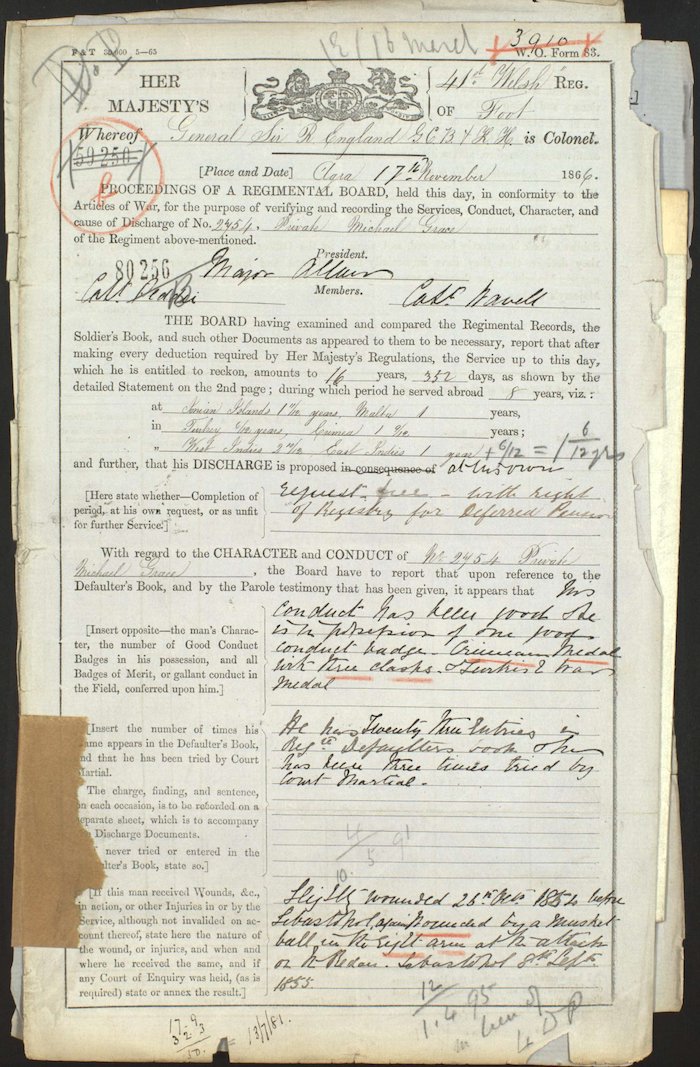 F & T 30,000 5—65
12/16 March
3910
W. O. Form 83.
HER
MAJESTY'S
41st Welsh REG.
OF Foot
Whereof General Sir R England G.C.B & K.H. is Colonel.
59250
[Place and Date] Clara 17th November 1866.
PROCEEDINGS OF A REGIMENTAL BOARD, held this day, in conformity to the
Articles of War, for the purpose of verifying and recording the Services, Conduct, Character, and
cause of Discharge of No. 2454. Private Michael Grace
of the Regiment above-mentioned.
President.
80256
Major Allan
Members.
Capt. Capt. Wavell
THE BOARD having examined and compared the Regimental Records, the
Soldier's Book, and such other Documents as appeared to them to be necessary, report that after
making every deduction required by Her Majesty's Regulations, the Service up to this day,
which he is entitled to reckon, amounts to 16 years, 352 days, as shown by the
detailed Statement on the 2nd page; during which period he served abroad 8 years, viz.:
at Ionian Islands 1 years, Malta 1 years,
in Turkey years, Crimea 1 years;
" West Indies 2 East Indies 1 year + 6/12 = 1 6/12 yrs
and further, that his DISCHARGE is proposed in consequence of at his own
[Here state whether—Completion of
period, at his own request, or as unfit
for further Service.]
request free - with right
of Registry for Deferred Pension
With regard to the CHARACTER and CONDUCT of No 2454 Private
Michael Grace, the Board have to report that upon reference to the
Defaulter's Book, and by the Parole testimony that has been given, it appears that his
[Insert opposite—the man's Charac-
ter, the number of Good Conduct
Badges in his possession, and all
Badges of Merit, or gallant conduct in
the Field, conferred upon him.]
conduct has been good & he
is in possession of one good
conduct badge. Crimean Medal
with three clasps. & Turkish War
Medal
[Insert the number of times his
name appears in the Defaulter's Book,
and that he has been tried by Court
Martial.
The charge, finding, and sentence,
on each occasion, is to be recorded on a
separate sheet, which is to accompany
Discharge Documents.
never tried or entered in the
Defaulter's Book, state so.]
He has Twenty three Entries in
Regtl Defaulters book & he
has been three times tried by
Court Martial.
4/5 91
10.
[If this man received Wounds, &c.,
in action, or other Injuries in or by the
Service, although not invalided on ac-
count thereof, state here the nature of
the wound, or injuries, and when and
where he received the same, and if
any Court of Enquiry was held, (as is
required) state or annex the result.]
Slightly wounded 26th Octr 1854 before
Sebastopol, again wounded by a musket
ball in the right arm at the attack
on the Redan. Sebastopol 8th Septr
1855
12/1.4.95
in lieu of
13/7/81.